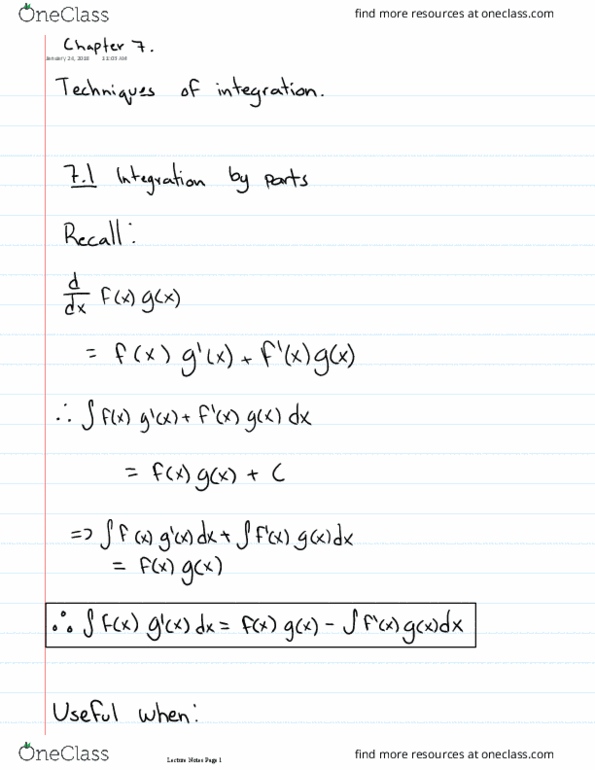 OneClass
find more resources at oneclass.com
Chapter 7.
January 24, 2018 11:03 AM
Techniques of integration.
7.1 Integration by parts
Recall:
d/dx f(x) g(x)
= f(x) g'(x) + f'(x) g(x)
∴ ∫ f(x) g'(x) + f'(x) g(x) dx
= f(x) g(x) + C
=> ∫ f(x) g'(x) dx + ∫ f'(x) g(x) dx
= f(x) g(x)
∴ ∫ f(x) g'(x) dx = f(x) g(x) - ∫ f'(x) g(x) dx
Useful when:
OneClass
Lecture Notes Page 1
find more resources at oneclass.com